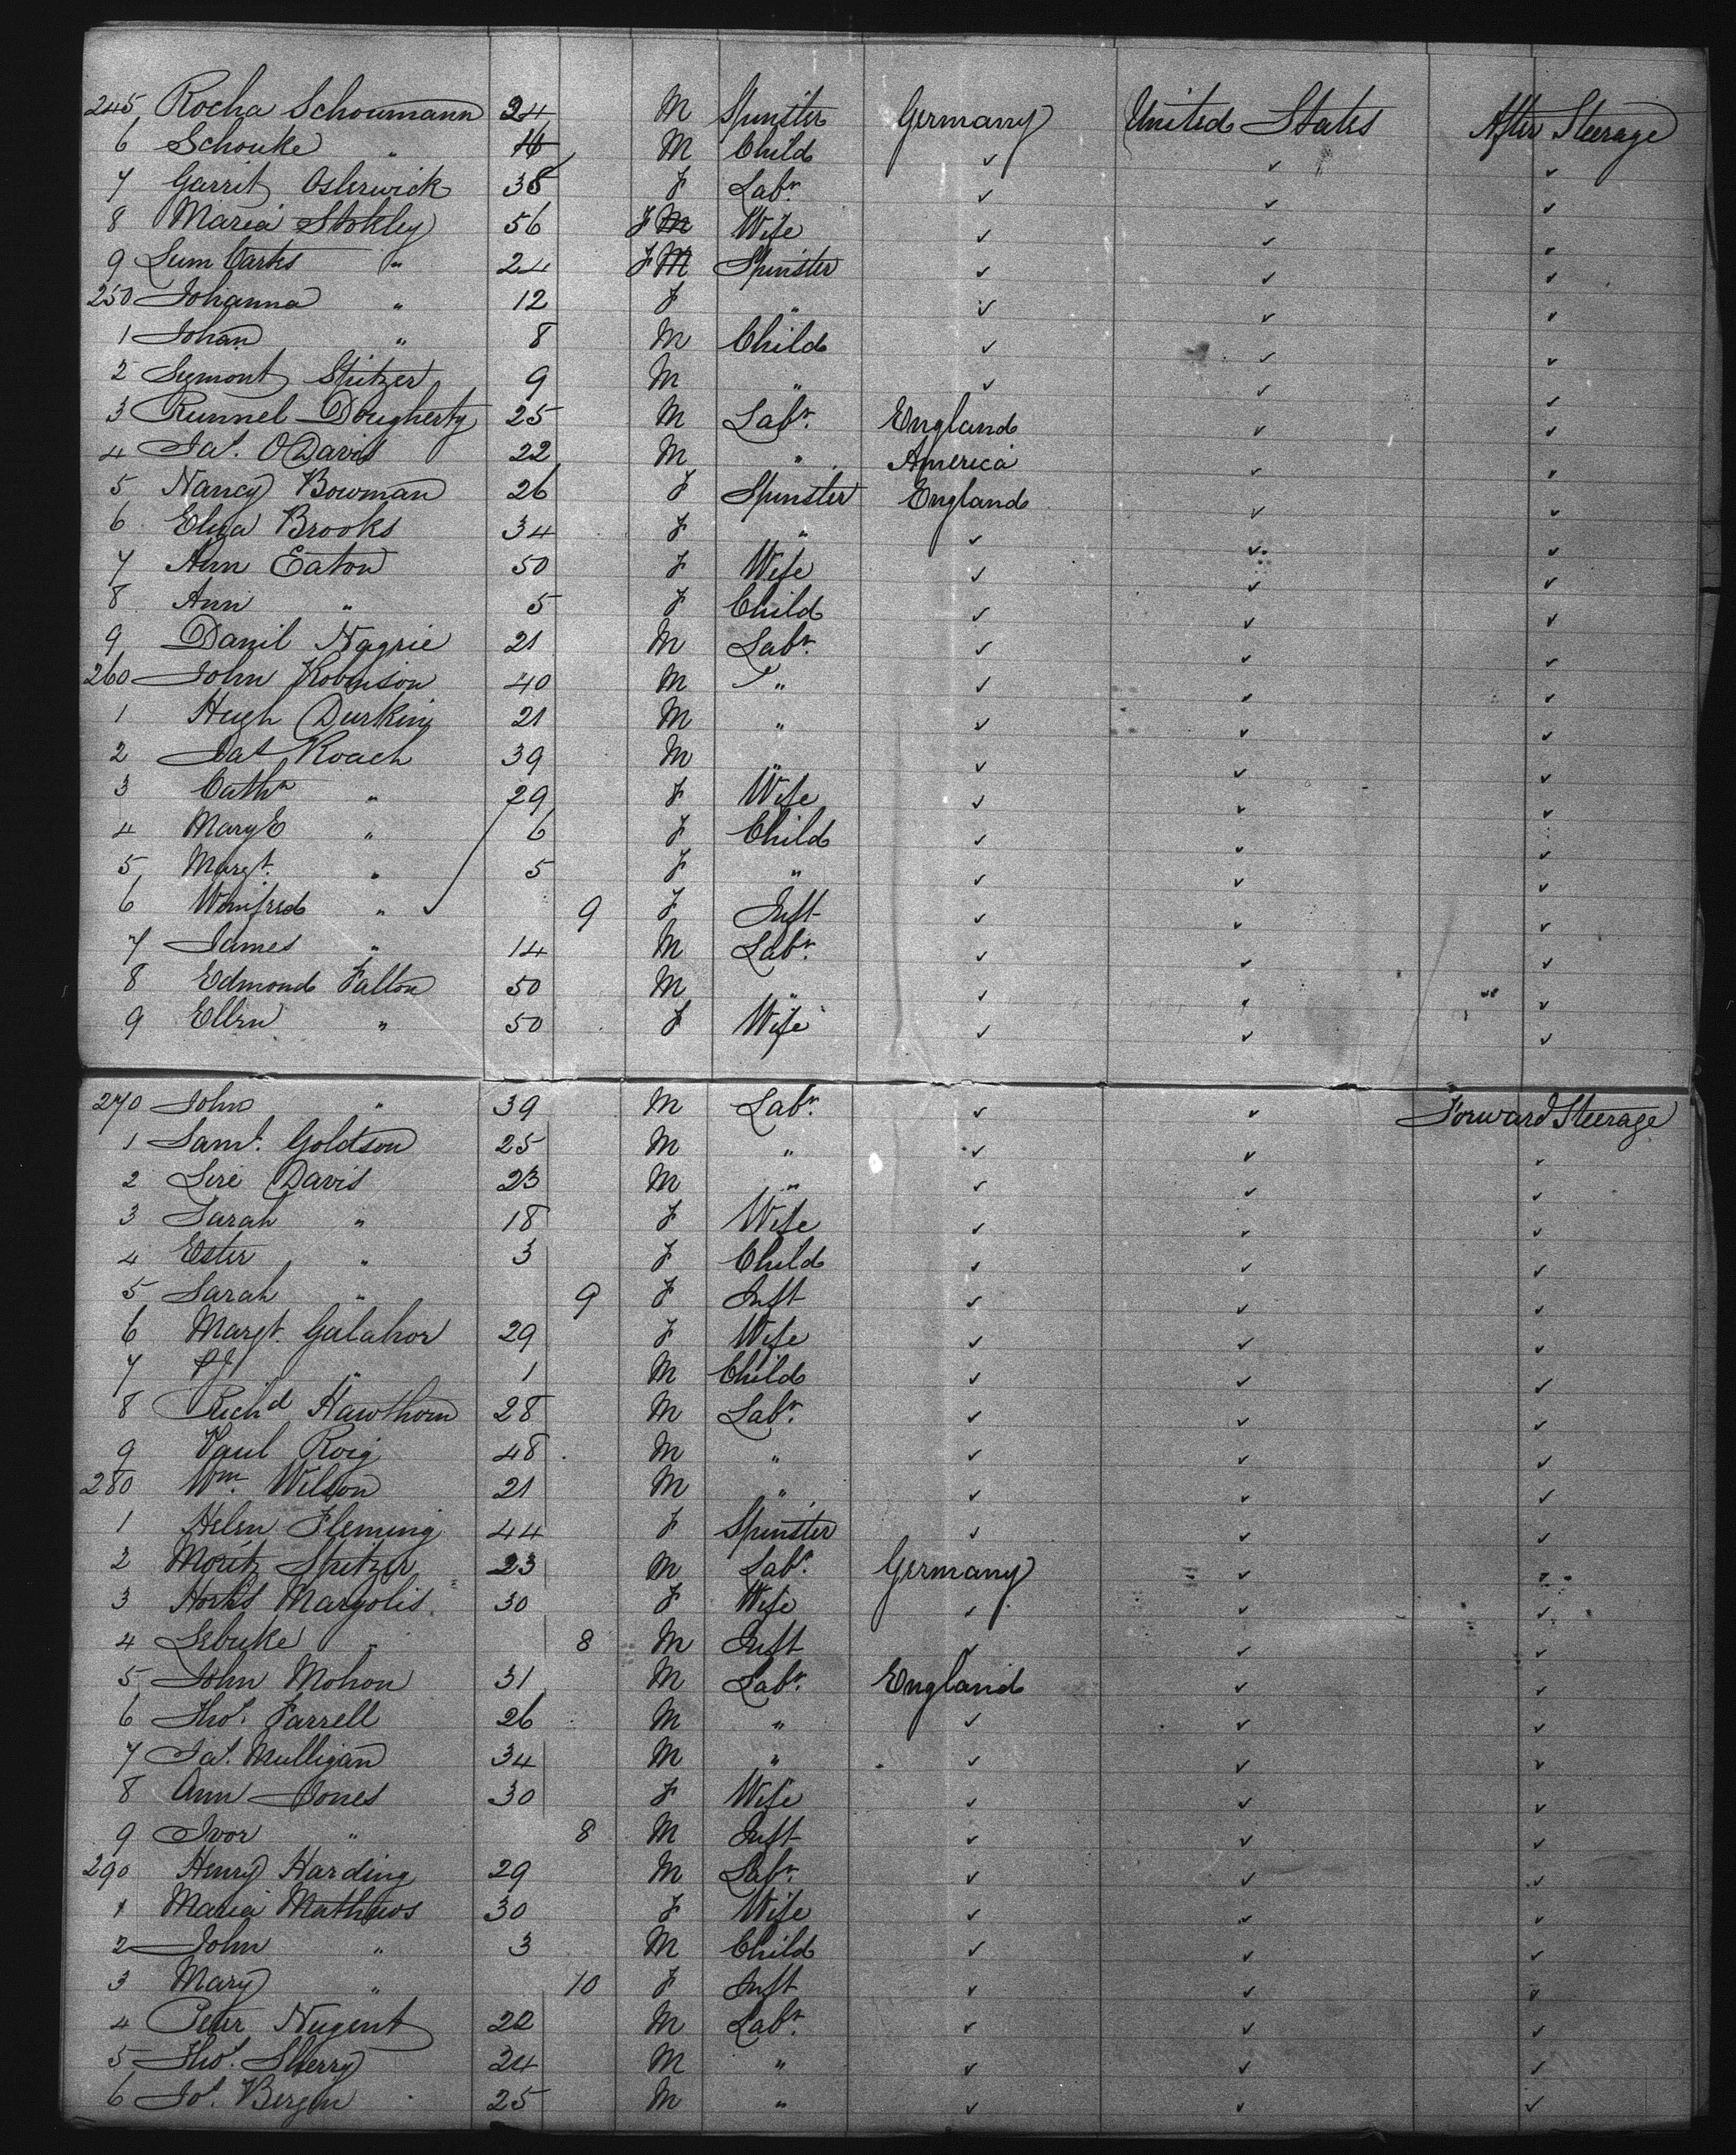 245 Rocha Schoumann 24 M Spinster Germany United States After Steerage
6 Schouke " M Child ✓ ✓ ✓
7 Garrit Osterwick 38 F Labr. ✓ ✓ ✓
8 Maria Stokley 56 F M Wife ✓ ✓ ✓
9 " 24 F M Spinster ✓ ✓ ✓
250 Johanna " 12 F " ✓ ✓ ✓
1 Johan " 8 M Child ✓ ✓ ✓
2 Sigmont Spitzer 9 M " ✓ ✓ ✓
3 Runnel Dougherty 25 M Labr. England ✓ ✓
4 Jas. O Davis 22 M " America ✓ ✓
5 Nancy Bowman 26 F Spinster England ✓ ✓
6 Eliza Brooks 34 F " ✓ ✓ ✓
7 Ann Eaton 50 F Wife ✓ ✓ ✓
8 Ann " 5 F Child ✓ ✓ ✓
9 Danil Nagrie 21 M Labr. ✓ ✓ ✓
260 John Robinson 40 M " ✓ ✓ ✓
1 Hugh Durkin 21 M " ✓ ✓ ✓
2 Jas Roach 39 M " ✓ ✓ ✓
3 Cathn " 29 F Wife ✓ ✓ ✓
4 Mary E " 6 F Child ✓ ✓ ✓
5 Margt. " 5 F " ✓ ✓ ✓
6 Winifred " ✓ 9 F Inft ✓ ✓ ✓
7 James " 14 M Labr. ✓ ✓ ✓
8 Edmond Fallon 50 M " ✓ ✓ ✓
9 Ellen " 50 F Wife ✓ ✓ ✓
270 John " 39 M Labr. ✓ ✓ Forward Steerage
1 Saml. Goldson 25 M " ✓ ✓ ✓
2 Davis 23 M " ✓ ✓ ✓
3 Sarah " 18 F Wife ✓ ✓ ✓
4 Ester " 3 F Child ✓ ✓ ✓
5 Sarah " 9 F Inft ✓ ✓ ✓
6 Margt. Galahor 29 F Wife ✓ ✓ ✓
7 PJ " 1 M Child ✓ ✓ ✓
8 Richd Hawthorn 28 M Labr. ✓ ✓ ✓
9 Paul Roig 48 M " ✓ ✓ ✓
280 Wm. Wilson 21 M " ✓ ✓ ✓
1 Helen Fleming 44 F Spinster ✓ ✓ ✓
2 Moritz Spitzer 23 M Labr. Germany ✓ ✓
3 Margolis 30 F Wife ✓ ✓ ✓
4 Lebuke " 8 M Inft ✓ ✓ ✓
5 John Mohon 31 M Labr. England ✓ ✓
6 Thos. Farrell 26 M " ✓ ✓ ✓
7 Jas. Mulligan 34 M " ✓ ✓ ✓
8 Ann Jones 30 F Wife ✓ ✓ ✓
9 Ivor " 8 M Inft ✓ ✓ ✓
290 Henry Harding 29 M Labr. ✓ ✓ ✓
1 Maria Mathews 30 F Wife ✓ ✓ ✓
2 John " 3 M Child ✓ ✓ ✓
3 Mary " 10 F Inft ✓ ✓ ✓
4 Peter Nugent 22 M Labr. ✓ ✓ ✓
5 Thos. Sherry 24 M " ✓ ✓ ✓
6 Jos. Bergen 25 M " ✓ ✓ ✓